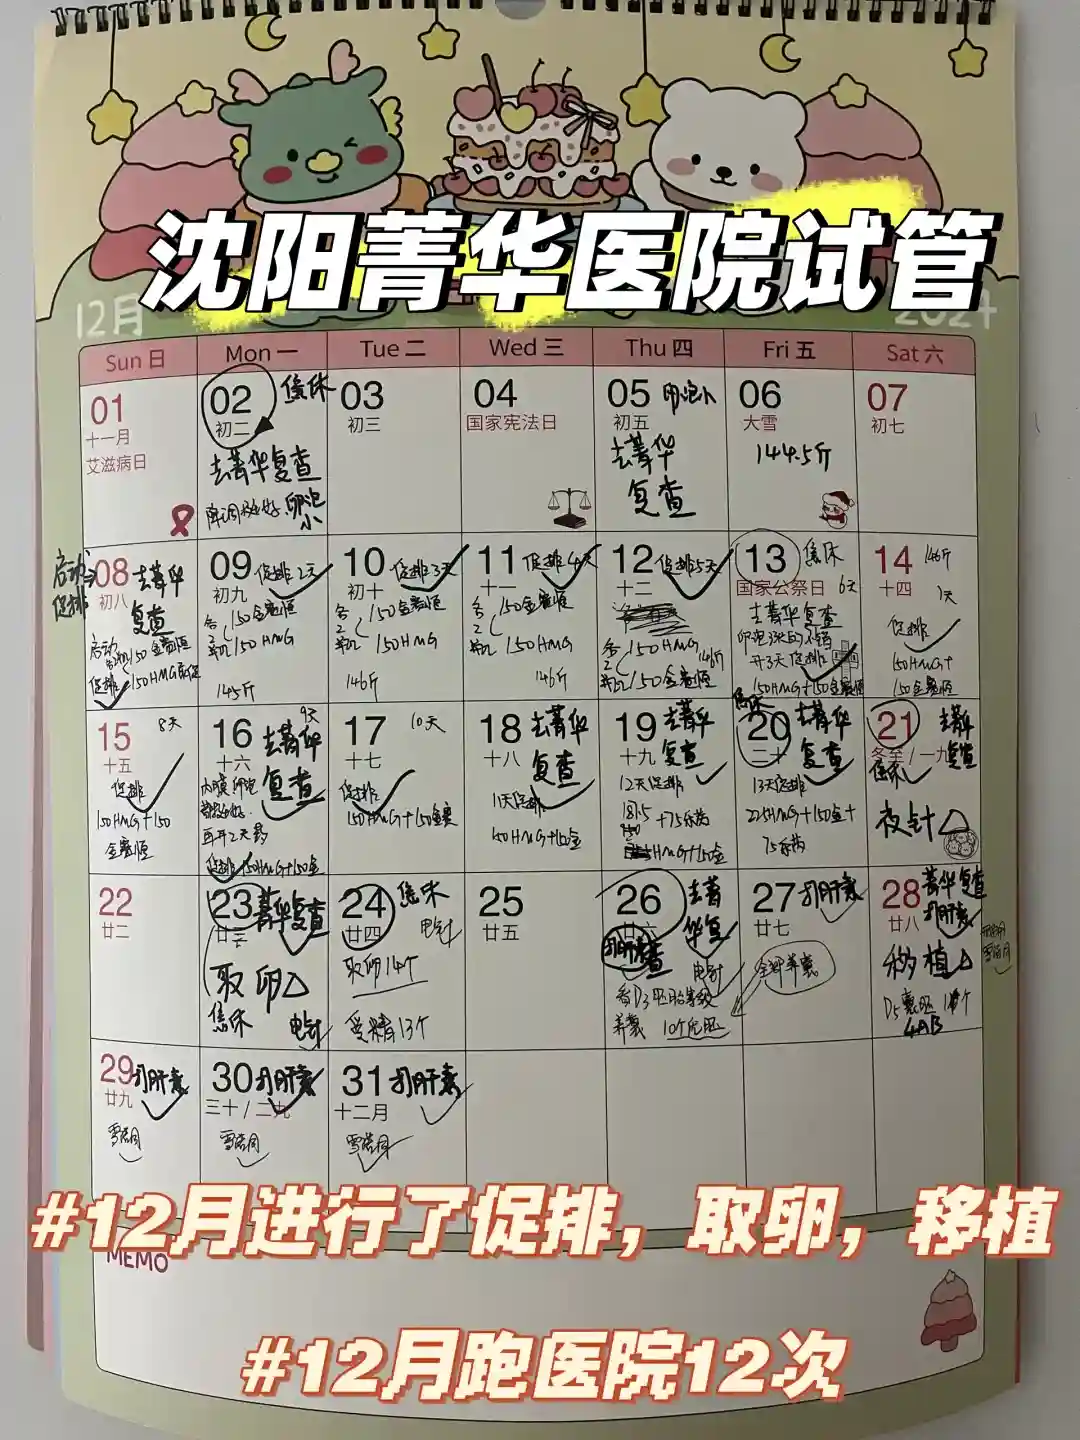 沈阳菁华医院试管
12月
2024
Sun 日 Mon 一 Tue 二 Wed 三 Thu 四 Fri 五 Sat 六
01
十一月
艾滋病日
02
初二
去菁华复查
卵泡小
03
初三
04
国家宪法日
05
初五
去菁华
复查
06
大雪
144.5斤
07
初七
启动
促排
08 去菁华
初八
复查
启动
促排
150金赛恒
150HMG
09 促排2天
初九
150金赛恒
150HMG
145斤
10 促排3天
初十
各
2
150金赛恒
150HMG
146斤
11 促排4天
十一
各
2
150金赛恒
150HMG
146斤
12 促排5天
十二
各
2
150HMG
150金赛恒
146斤
13
国家公祭日 6天
去菁华复查
开3天促排
150HMG+150金赛恒
14 146斤
十四
7天
促排
150HMG+
150金赛恒
15 8天
十五
促排
150HMG+150
金赛恒
16 9天
十六
去菁华
复查
内膜卵泡
再开2天药
促排150HMG+150金
17 10天
十七
促排
150HMG+150金赛
18 去菁华
十八
复查
11天促排
150HMG+150金
19 去菁华
十九 复查
12天促排
HMG+150金
20 去菁华
二十 复查
13天促排
225HMG+150金+
21 去菁华
冬至/一九 复查
夜针
22
廿二
23 菁华复查
廿三
取卵
24
廿四
取卵14个
受精13个
25
廿五
26 去菁
廿六 华复
查
打肝素
看D3胚胎等级
养囊 10个
27 打肝素
廿七
全部养囊
28 菁华复查
廿八 打肝素
移植
D5囊胚 1个
4AB
29 打肝素
廿九
雪诺同
30 打肝素
三十/二九
雪诺同
31 打肝素
十二月
雪诺同
#12月进行了促排，取卵，移植
MEMO
#12月跑医院12次